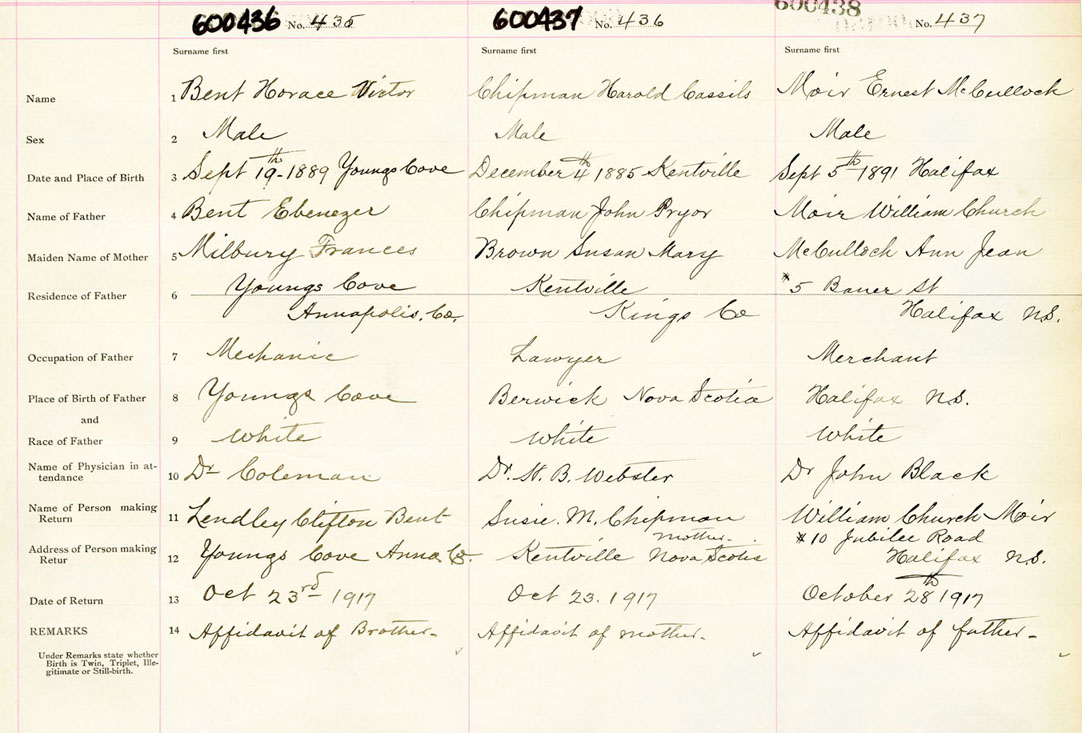 600436 No. 435 600437 No. 436 600438 No. 437
Surname first Surname first Surname first
Name 1 Bent Horace Victor Chipman Harold Cassils Moir Ernest McCullock
Sex 2 Male Male Male
Date and Place of Birth 3 Sept 19th - 1889 Youngs Cove December 4th 1885 Kentville Sept 5th 1891 Halifax
Name of Father 4 Bent Ebenezer Chipman John Pryor Moir William Church
Maiden Name of Mother 5 Milbury Frances Brown Susan Mary McCulloch Ann Jean
Residence of Father 6 Youngs Cove Kentville #5 St
Annapolis. Co. Kings Co Halifax N.S.
Occupation of Father 7 Mechanic Lawyer Merchant
Place of Birth of Father 8 Youngs Cove Berwick Nova Scotia Halifax N.S.
and
Race of Father 9 White White White
Name of Physician in at-
tendance 10 Dr Coleman Dr. H. B. Webster Dr John Black
Name of Person making
Return 11 Lendley Clifton Bent Susie. M. Chipman William Church Moir
mother. #10 Jubilee Road
Address of Person making
Retur 12 Youngs Cove Anna. Co. Kentville Nova Scotia Halifax N.S.
Date of Return 13 Oct 23rd - 1917 Oct 23. 1917 October 28th 1917
REMARKS 14 Affidavit of Brother- Affidavit of mother- Affidavit of father-
Under Remarks state whether
Birth is Twin, Triplet, Ille-
gitimate or Still-birth.